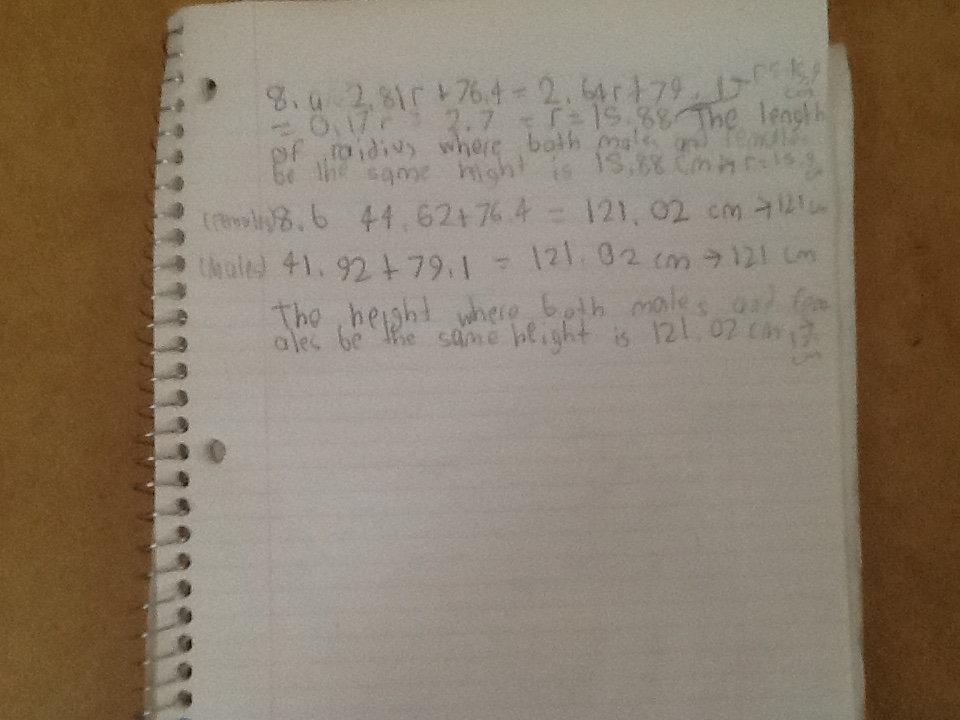 8. a 2.81r + 76.4 = 2.64r + 79.1 → r = 15.9 cm
= 0.17r = 2.7 = r = 15.88 The length
of raidius where both males and females
be the same hight is 15.88 cm r = 15.9
(females) 8. b 44.62 + 76.4 = 121.02 cm → 121 cm
(Males) 41.92 + 79.1 = 121.02 cm → 121 cm
The height where both males and fem
ales be the same height is 121.02 cm